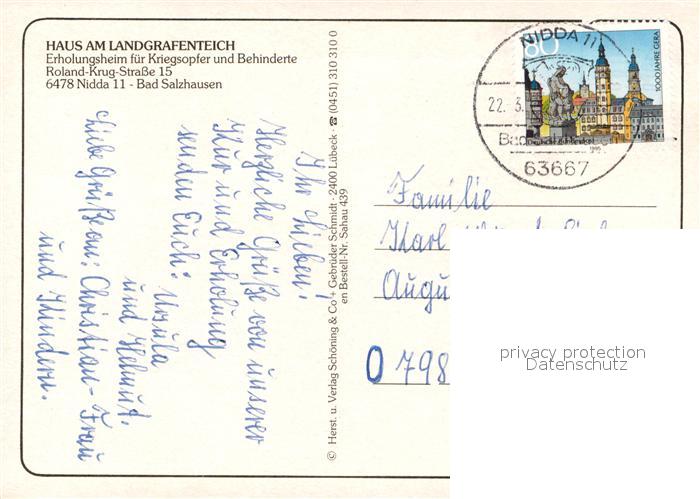 HAUS AM LANDGRAFENTEICH
Erholungsheim für Kriegsopfer und Behinderte
Roland-Krug-Straße 15
6478 Nidda 11 - Bad Salzhausen
Ihr Lieben!
Herzliche Grüße von unserer
Kur und Erholung
senden Euch:
Ursula
und Helmut.
Liebe Grüße an: Christian - Frau
und Kindern.
© Herst. u. Verlag Schöning & Co + Gebrüder Schmidt · 2400 Lübeck · ☎ (0451) 310 310 0
en Bestell-Nr. Sahau 439
NIDDA 11
22. 3.
Bad
63667
80
1000 JAHRE GERA
1995
Familie
Karl
Augu
O 798
privacy protection
Datenschutz